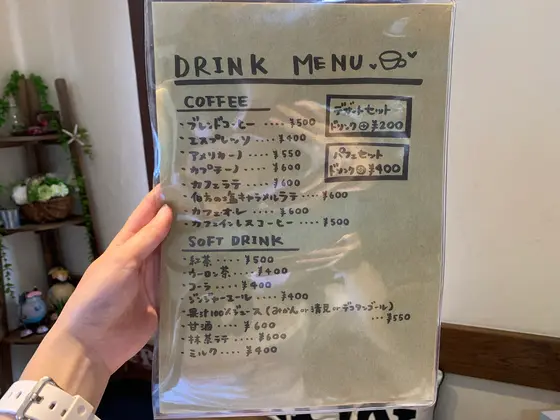 DRINK MENU
COFFEE
・ブレンドコーヒー ････ ¥500
・エスプレッソ ････ ¥400
・アメリカーノ ････ ¥550
・カプチーノ ････ ¥600
・カフェラテ ････ ¥600
・伯方の塩キャラメルラテ ･･ ¥600
・カフェオレ ････ ¥600
・カフェインレスコーヒー ････ ¥500
デザートセット
ドリンク⊕¥200
パフェセット
ドリンク⊕¥400
SOFT DRINK
・紅茶 ････ ¥500
・ウーロン茶 ････ ¥400
・コーラ ････ ¥400
・ジンジャーエール ････ ¥400
・果汁100%ジュース (みかん or 清見 or デコタンゴール)
･･･ ¥550
・甘酒 ････ ¥600
・抹茶ラテ ････ ¥600
・ミルク ････ ¥400